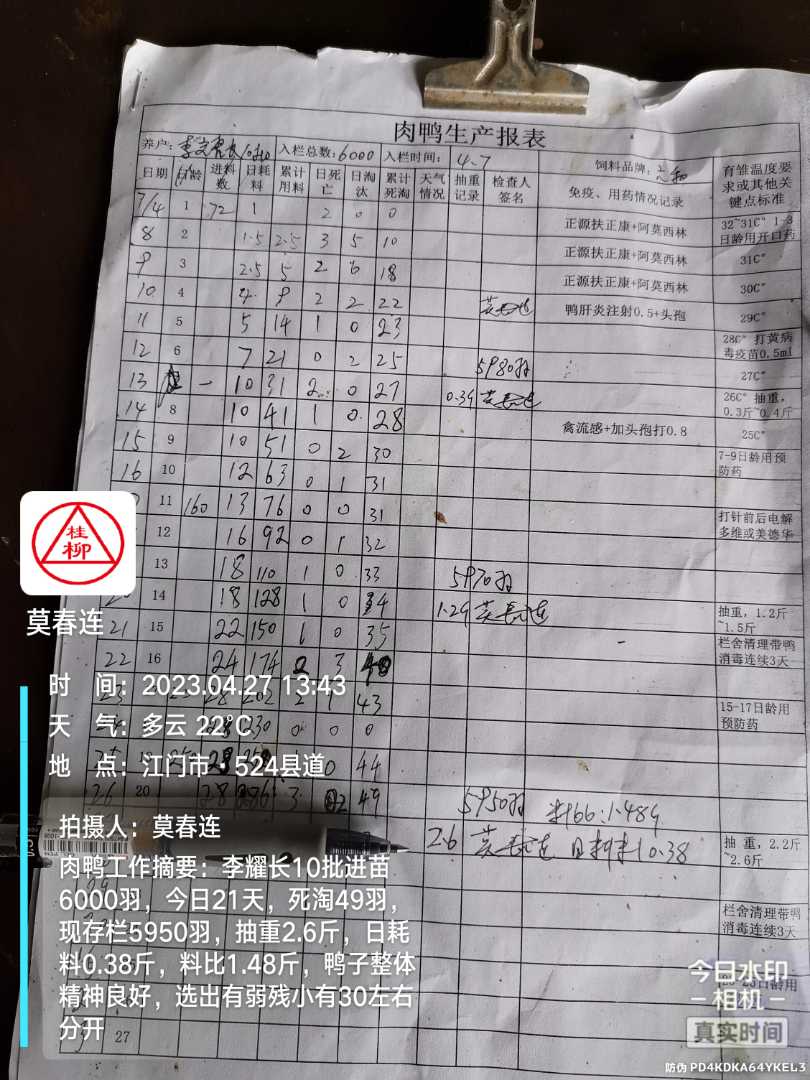 肉鸭生产报表
养户: 入栏总数: 6000 入栏时间: 4.7 饲料品牌: 育雏温度要求或其他关键点标准
日期 日龄 进料数 日耗料 累计用料 日死亡 日淘汰 累计死淘 天气情况 抽重记录 检查人签名 免疫、用药情况记录
7/4 1 72 1 2 0 0 正源扶正康+阿莫西林 32~31C° 1-3日龄用开口药
8 2 1.5 2.5 3 5 10 正源扶正康+阿莫西林 31C°
9 3 2.5 5 2 6 18 正源扶正康+阿莫西林 30C°
10 4 4 9 2 2 22 鸭肝炎注射0.5+头孢 29C°
11 5 5 14 1 0 23 28C° 打黄病毒疫苗0.5ml
12 6 7 21 0 2 25 5980羽 27C°
13 10 31 2 0 27 0.39 26C° 抽重,0.3斤~0.4斤
14 8 10 41 1 0 28 禽流感+加头孢打0.8 25C°
15 9 10 51 0 2 30 7-9日龄用预防药
16 10 12 63 0 1 31
11 160 13 76 0 0 31 打针前后电解多维或美德华
12 16 92 0 1 32
13 18 110 1 0 33 5970羽
20 14 18 128 1 0 34 1.29 抽重,1.2斤~1.5斤
21 15 22 150 1 0 35 栏舍清理带鸭消毒连续3天
22 16 24 174 2 3 40
23 28 202 2 1 43 15-17日龄用预防药
28 230 0 0 0
25 19 250 28 0 44
26 20 28 286 3 2 49 5950羽 料66:1.489
2.6 日料耗0.38 抽 重,2.2斤~2.6斤
栏舍清理带鸭消毒连续3天
日龄用
27
桂柳
莫春连
时 间: 2023.04.27 13:43
天 气: 多云 22℃
地 点: 江门市·524县道
拍摄人: 莫春连
肉鸭工作摘要: 李耀长10批进苗
6000羽，今日21天，死淘49羽，
现存栏5950羽，抽重2.6斤，日耗
料0.38斤，料比1.48斤，鸭子整体
精神良好，选出有弱残小有30左右
分开
今日水印
相机
真实时间
防伪 PD4KDKA64YKEL3